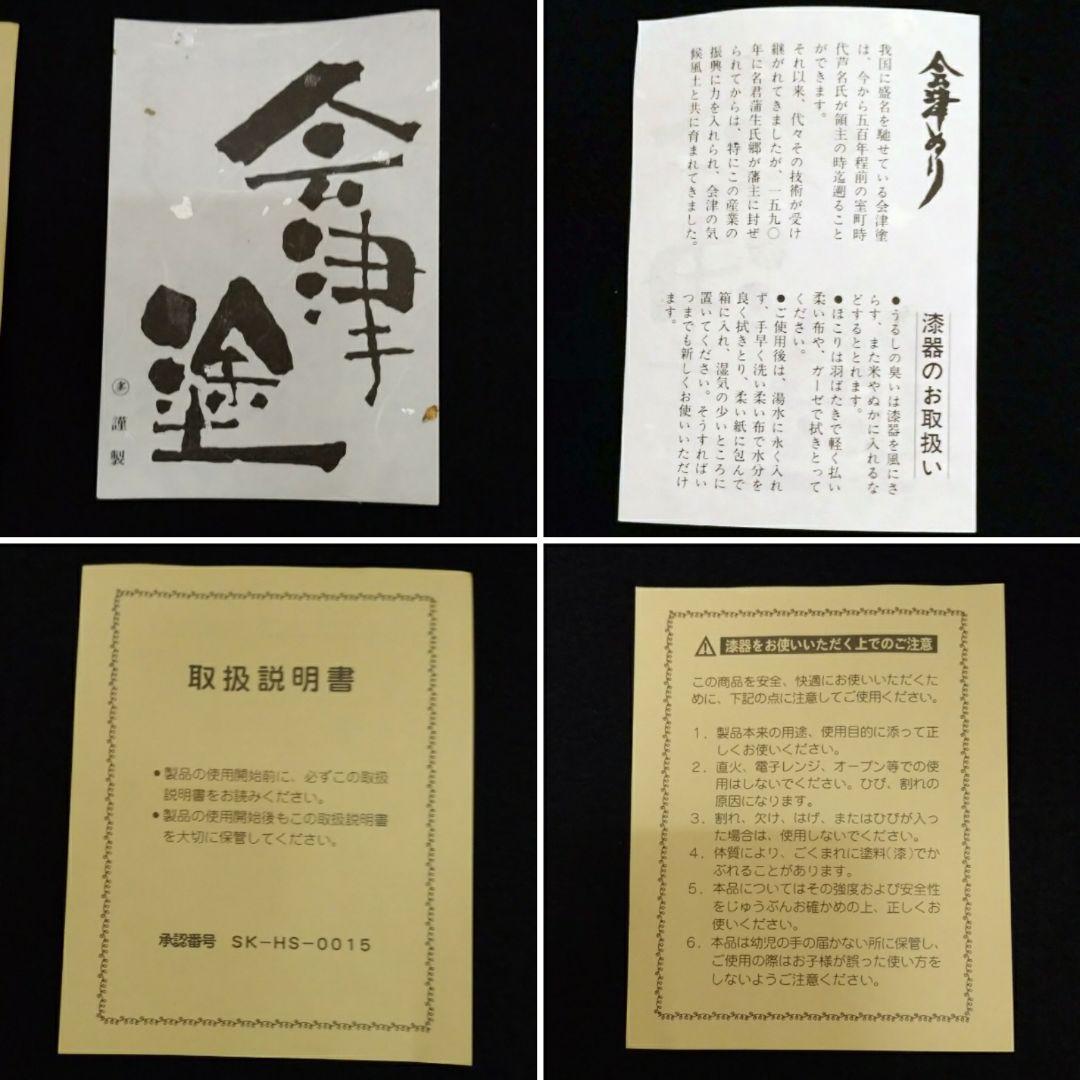 会津
塗
謹製
会津ぬり
我国に盛名を馳せている会津塗
は、今から五百年程前の室町時
代芦名氏が領主の時迄遡ること
ができます。
それ以来、代々その技術が受け
継がれてきましたが、一五九〇
年に名君蒲生氏郷が藩主に封ぜ
られてからは、特にこの産業の
振興に力を入れられ、会津の気
候風土と共に育まれてきました。
漆器のお取扱い
●うるしの臭いは漆器を風にさ
らす、また米やぬかに入れるな
どするととれます。
●ほこりは羽ばたきで軽く払い
柔い布や、ガーゼで拭きとって
ください。
●ご使用後は、湯水に永く入れ
ず、手早く洗い柔い布で水分を
良く拭きとり、柔い紙に包んで
箱に入れ、湿気の少いところに
置いてください。そうすればい
つまでも新しくお使いいただけ
ます。
取扱説明書
●製品の使用開始前に、必ずこの取扱
説明書をお読みください。
●製品の使用開始後もこの取扱説明書
を大切に保管してください。
承認番号 SK-HS-0015
漆器をお使いいただく上でのご注意
この商品を安全、快適にお使いいただくた
めに、下記の点に注意してご使用ください。
1. 製品本来の用途、使用目的に添って正
しくお使いください。
2. 直火、電子レンジ、オーブン等での使
用はしないでください。ひび、割れの
原因になります。
3. 割れ、欠け、はげ、またはひびが入っ
た場合は、使用しないでください。
4. 体質により、ごくまれに塗料(漆)でか
ぶれることがあります。
5. 本品についてはその強度および安全性
をじゅうぶんお確かめの上、正しくお
使いください。
6. 本品は幼児の手の届かない所に保管し、
ご使用の際はお子様が誤った使い方を
しないようご注意ください。